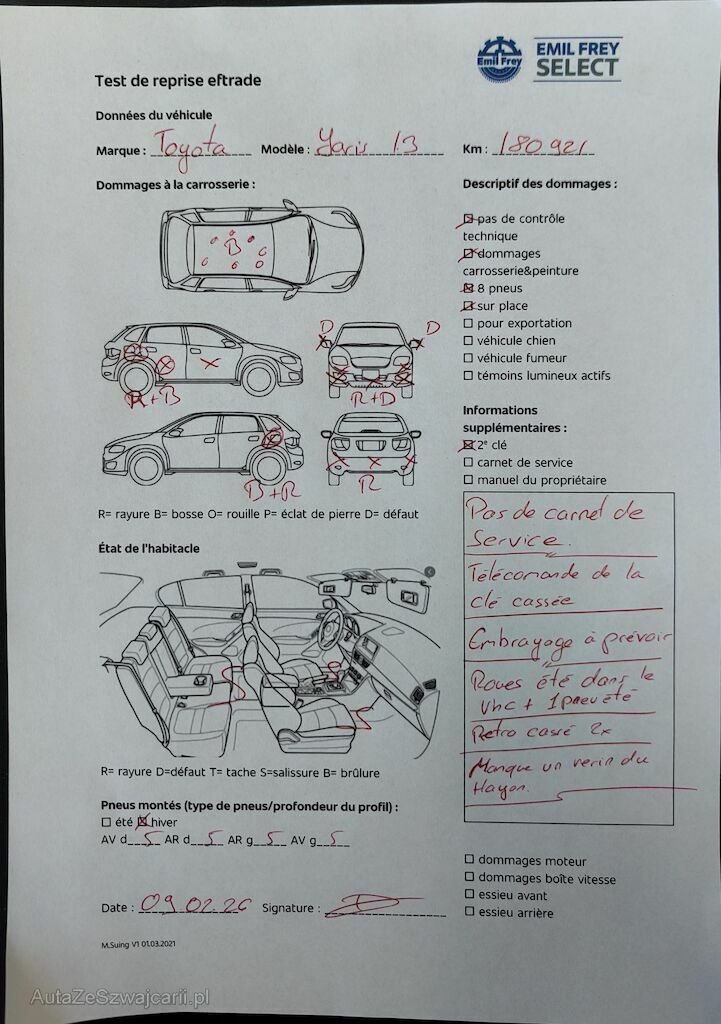 Emil Frey
EMIL FREY
SELECT
Test de reprise eftrade
Données du véhicule
Marque : Toyota Modèle : Yaris 1.3 Km : 180921
Dommages à la carrosserie :
B
D D
R+B R+D
B+R R
R= rayure B= bosse O= rouille P= éclat de pierre D= défaut
État de l'habitacle
S S S
R= rayure D=défaut T= tache S=salissure B= brûlure
Pneus montés (type de pneus/profondeur du profil) :
été hiver
AV d 5 AR d 5 AR g 5 AV g 5
Date : 09.02.26 Signature :
M.Suing V1 01.03.2021
Descriptif des dommages :
pas de contrôle
technique
dommages
carrosserie&peinture
8 pneus
sur place
pour exportation
véhicule chien
véhicule fumeur
témoins lumineux actifs
Informations
supplémentaires :
2e clé
carnet de service
manuel du propriétaire
Pas de carnet de
Service.
Télécomande de la
clé cassée
Embrayage à prévoir
Roues été dans le
vhc + 1 pneu été
Retro cassé 2x
Manque un verin du
Hayon.
dommages moteur
dommages boîte vitesse
essieu avant
essieu arrière
AutaZeSzwajcarii.pl